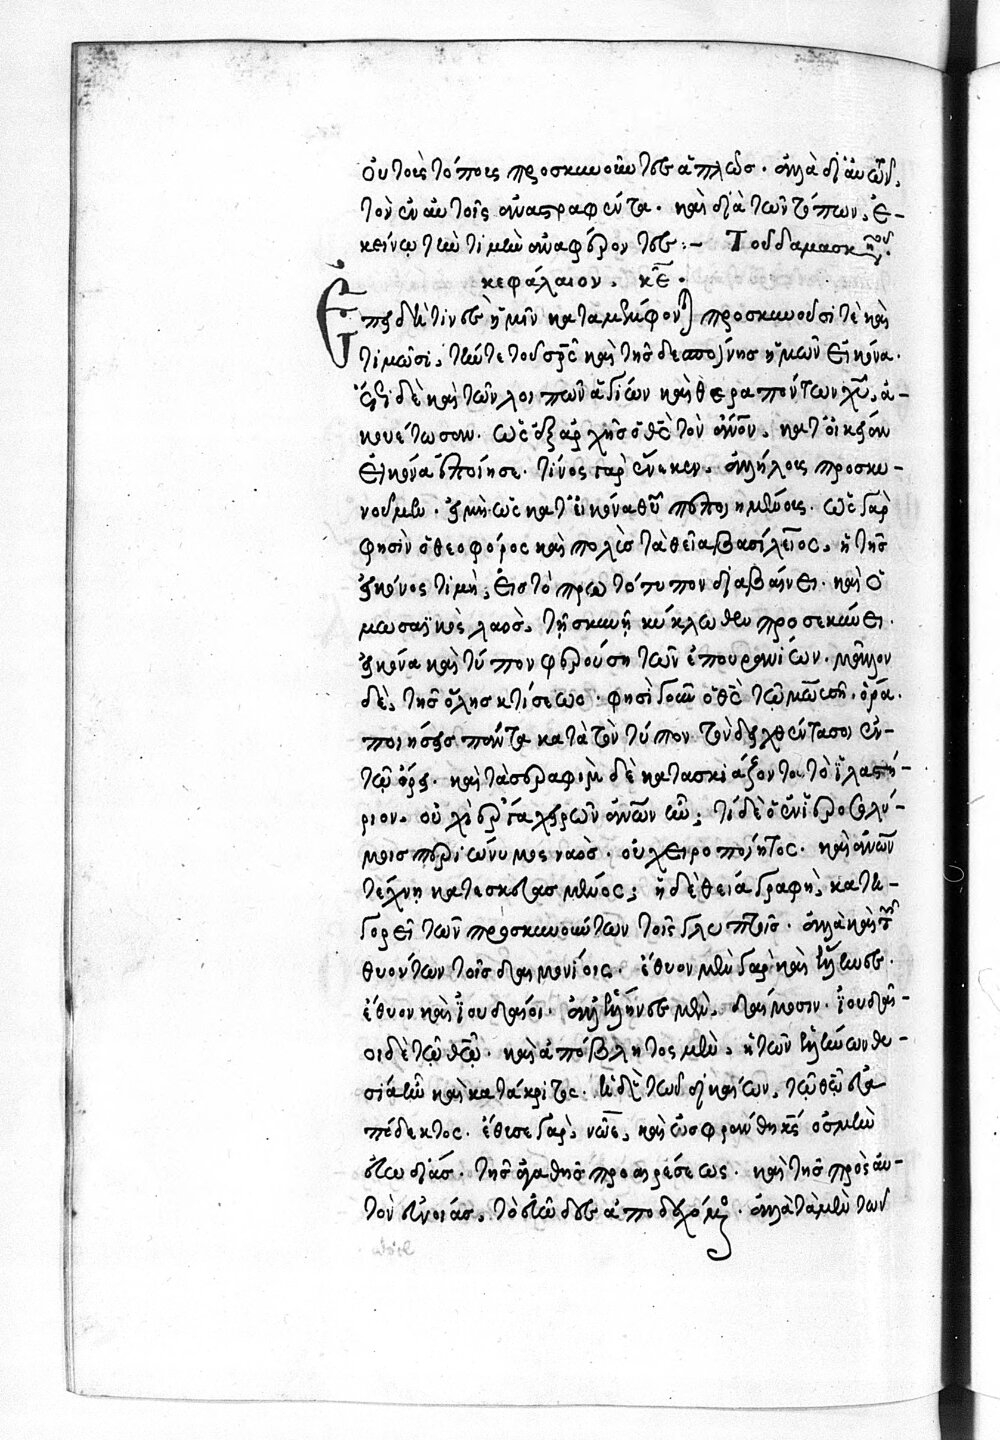 οὐ τοῖς τόποις προσκυνοῦντες ἁπλῶς. ἀλλὰ δι' αὐτῶν,
τὸν ἐν αὐτοῖς ἀναγραφέντα. καὶ διὰ τῶν τόπων, ἐ-
κείνῳ τὴν τιμὴν ἀναφέροντες :- Τοῦ δαμασκηνοῦ.
κεφάλαιον. κε.
Ἐπειδή τινες ἡμῖν καταμέμφονται προσκυνοῦσί τε καὶ
τιμῶσι, τήν τε τοῦ σρς καὶ τῆς δεσποίνης ἡμῶν εἰκόνα.
ἔτι δὲ καὶ τῶν λοιπῶν ἁγίων καὶ θεραπόντων χυ, ἀ-
κουέτωσαν. ὡς ἐξ ἀρχῆς ὁ θς τὸν ἄνον, κατ' οἰκείαν
εἰκόνα ἐποίησε. τίνος γὰρ ἕνεκεν, ἀλλήλοις προσκυ-
νοῦμεν. εἰ μὴ ὡς κατ' εἰκόνα θυ πεποιημένοις. ὡς γὰρ
φησὶν ὁ θεοφόρος καὶ πολὺς τὰ θεῖα βασίλειος, ἡ τῆς
εἰκόνος τιμὴ, εἰς τὸ πρωτότυπον διαβαίνει. καὶ ὁ
μωσαϊκὸς λαὸς, τῇ σκηνῇ κύκλωθεν προσεκύνει.
εἰκόνα καὶ τύπον φερούσῃ τῶν ἐπουρανίων. μᾶλλον
δὲ, τῆς ὅλης κτίσεως. φησὶ γοῦν ὁ θς τῷ μωσῆ, ὅρα.
ποιήσεις πάντα κατὰ τὸν τύπον τὸν δειχθέντα σοι ἐν
τῷ ὄρει. καὶ τὰ σεραφὶμ δὲ κατασκιάζοντα τὸ ἱλαστή-
ριον. οὐχὶ ἔργα χειρῶν ἀνων ἦν; τί δὲ ὁ ἐν ἱεροσολύ-
μοις περιώνυμος ναὸς. οὐ χειροποίητος. καὶ ἀνων
τέχνῃ κατεσκευασμένος; ἡ δὲ θεία γραφὴ, κατη-
γορεῖ τῶν προσκυνούντων τοῖς γλυπτοῖς. ἀλλὰ καὶ τῶν
θυόντων τοῖς δαιμονίοις. ἔθυον μὲν γὰρ καὶ ἕλληνες.
ἔθυον καὶ ἰουδαῖοι. ἀλλ' ἕλληνες μὲν, δαίμοσιν. ἰουδαῖ-
οι δὲ τῷ θῷ. καὶ ἀπόβλητος μὲν, ἡ τῶν ἑλλήνων θυ-
σία ἦν καὶ κατάκριτος. ἡ δὲ τῶν δικαίων, τῷ θῷ εὐα-
πόδεκτος. ἔθυσε γὰρ, νῶε, καὶ ὠσφράνθη κς ὀσμὴν
εὐωδίας. τῆς ἀγαθῆς προαιρέσεως. καὶ τῆς πρὸς αὐ-
τὸν εὐνοίας, τὸ εὐῶδες ἀποδεχόμενος. ἀλλὰ τὰ μὲν τῶν